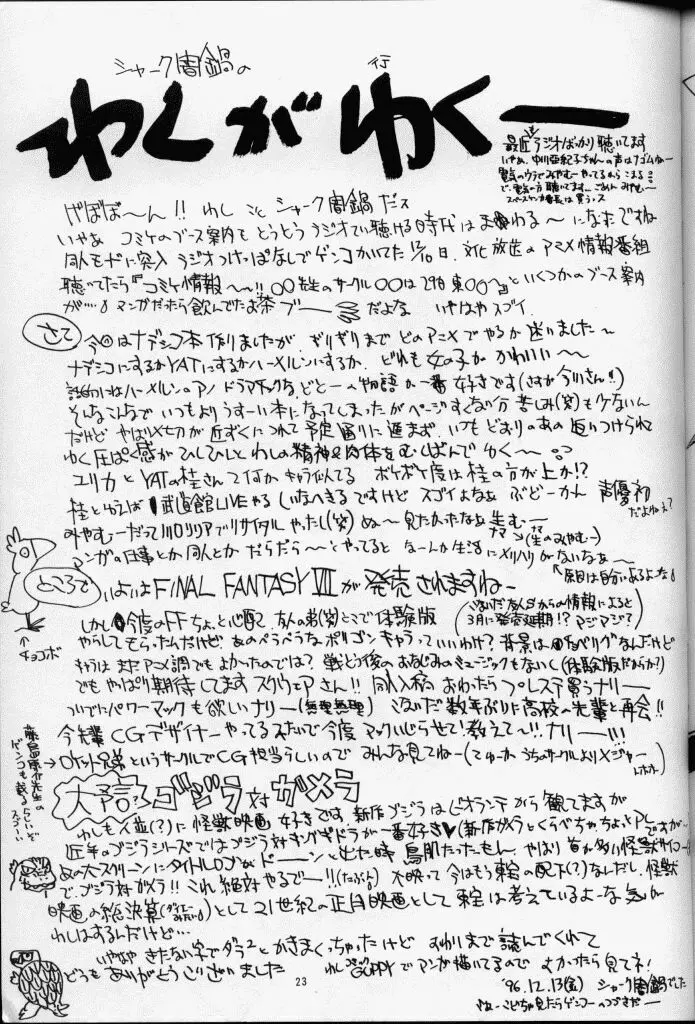 シャーク闇鍋の
行
わしがゆくー
最近ラジオばっかり聴いてます
げぼぼ〜ん!! わしことシャーク闇鍋だス
いやぁ コミケのブース案内もとうとうラジオで聴ける時代は になったですね
同人モードに突入 ラジオつけっぱなしでゲンコかいてた12/10日、文化放送のアニメ情報番組
聴いてたら『コミケ情報〜!! ○○先生のサークル○○は29日東○○〜』といくつかのブース案内
が…。マンガだったら飲んでたお茶ブー だよな いやはやスゴイ
さて
今回はナデシコ本作りましたが、ギリギリまでどのアニメでやるか迷いました〜
ナデシコにするかYATにするかハーメルンにするか、どれも女の子がかわいい〜
話的にはハーメルンのアノドラマチックな の物語が一番好きです(さすが今川さん!!)
そんなこんなでいつもよりうすーい本になってしまったがページすくない分苦しみ(笑)も少ないん
だけど やはり〆切が近ずくにつれて予定通りに進まず、いつもどおりのあの追いつけられて
ゆく圧ぱく感がひしひしとわしの精神&肉体をむしばんでゆく〜
ユリカとYATの桂さんて何かキャラ似てる ボケボケ度は桂の方が上か!?
桂といえば武道館LIVEやるしいなへきるですけど スゴイよなぁぶどーかん 声優初
だよねぇ?
みやむーだって川口リリアでリサイタルやったし(笑) ぬ〜見たかったなぁ生むー
ナマ→(生のみやむー)
マンガの仕事とか同人とかだらだら〜とやってると なーんか生活にメリハリがないなぁ〜
↑原因は自分にあるよーな。
ところで
いよいよFINAL FANTASY VIIが発売されますねー
しかし今度のFFちょっと心配 友人の弟(笑)とこで体験版
(ついだ友人Sからの情報によると
3月に発売延期!? マジマジ?)
やらしてもらったんだけど、あのぺらぺらなポリゴンキャラっていいわけ? 背景は なんだけど
キャラはまだアニメ調でもよかったのでは? 戦とう後のおなじみのミュージックもないし(体験版だからか?)
でもやっぱり期待してます スクウェアさん!! 同人入稿おわったらプレステ買うナリー
ついでにパワーマックも欲しいナリー(無理無理) 数年ぶりに高校の先輩と再会!!
今先輩CGデザイナーやってるみたいで今度マックいじらせて!教えて〜!!ナリー!!!
ロケット兄弟というサークルでCG担当らしいのでみんな見てねー(てゆーかうちのサークルよりメジャー
↑
チョコボ
藤島康介先生の
ゲンコも載るらしいぞ
スゴーい
大予言?ゴジラ対ガメラ
わしも人並(?)に怪獣映画好きです 新作ゴジラはビオランテから観てますが
近年のゴジラシリーズではゴジラ対キングギドラが一番好き♥(新作ガメラとくらべちゃ、ちょっとアレですが…
あの大スクリーンにタイトルロゴがドーンと出た時鳥肌たったもん、やはり首が多い怪獣サイコー!!
で、ゴジラ対ガメラ!! これ絶対やるで〜!!(たぶん) 大映って今はもう東宝の配下(?)なんだし、怪獣
映画の総決算( )として21世紀の正月映画として東宝は考えているよーな気が
わしはするんだけど…
いやはや きたない字でダラ2とかきまくっちゃったけど おわりまで読んでくれて
どうもありがとうございました わしGUPPYでマンガ描いてるのでよかったら見てネ!
'96.12.13(金) シャーク闇鍋でした
23